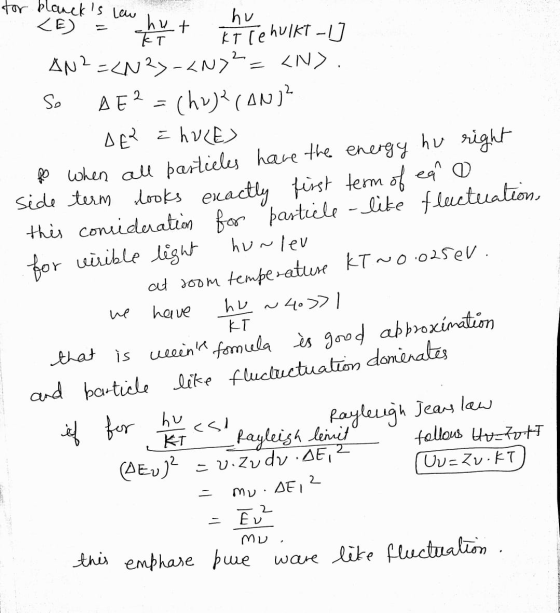 for planck's law
<E> = hν/kT + hν/kT[e hν/kT -1]
ΔN² = <N²> - <N>² = <N>.
So ΔE² = (hν)² (ΔN)²
ΔE² = hν<E>
when all particles have the energy hν right
side term looks exactly first term of eqⁿ ①
this consideration for particle-like fluctuation,
for visible light hν ~ 1ev
at room temperature KT ~ 0.025eV.
we have hν/KT ~ 40 >> 1
that is weein's fomula is good approximation
and particle like fluctuctuation donienates
if for hν/KT <<1 Rayleigh limit Rayleigh Jeans law
follows Uν=ZνKT
(ΔEν)² = v.Zν dν . ΔE₁² Uν=Zν.KT
= mν . ΔE₁²
= Ēν²/mν .
this emphase pure wave like fluctuation.